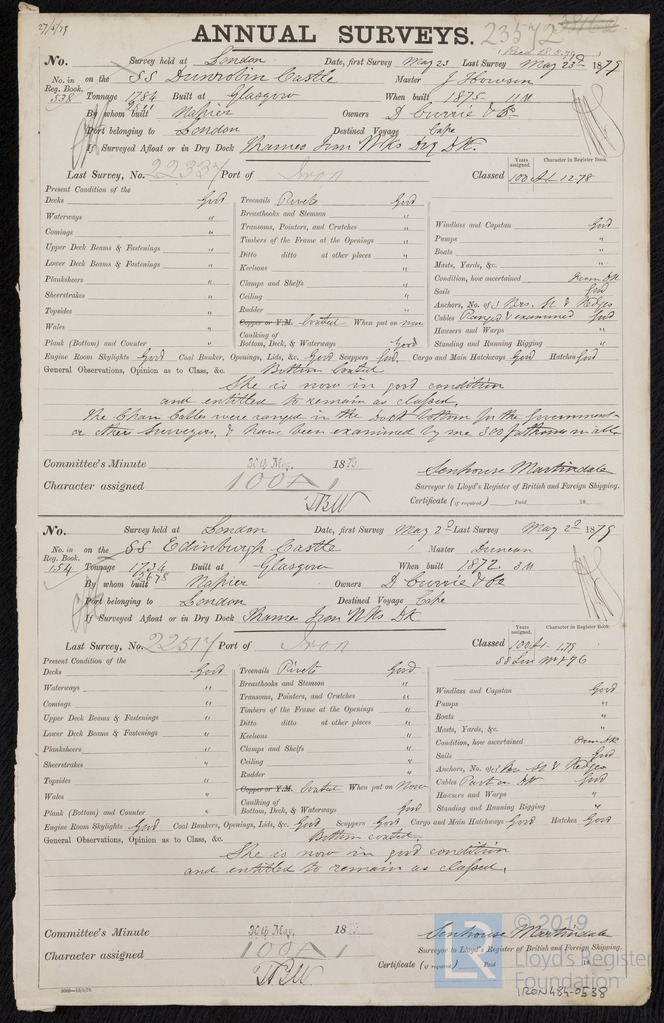 27/5/79
ANNUAL SURVEYS. 23572
Recd 28.5.79
No. Survey held at London Date, first Survey May 23 Last Survey May 23d 1879
No. in Reg. Book. 538 on the SS Dunrobin Castle Master J Howson
Tonnage 1784 Built at Glasgow When built 1875 11M
2811
By whom built Napier Owners D Currie & Co
Port belonging to London Destined Voyage Cape
If Surveyed Afloat or in Dry Dock Thames Iron Wks Dry Dk.
Last Survey, No. 22337 Port of Iron Classed
Years assigned. Character in Register Book.
100 A1 12.78
Present Condition of the
Decks Good
Waterways "
Comings "
Upper Deck Beams & Fastenings "
Lower Deck Beams & Fastenings "
Planksheers "
Sheerstrakes "
Topsides "
Wales "
Plank (Bottom) and Counter "
Treenails Rivets Good
Breasthooks and Stemson "
Transoms, Pointers, and Crutches "
Timbers of the Frame at the Openings "
Ditto ditto at other places "
Keelsons "
Clamps and Shelfs "
Ceiling "
Rudder "
Copper or Y.M. Coated When put on now
Caulking of Bottom, Deck, & Waterways Good
Windlass and Capstan Good
Pumps "
Boats "
Masts, Yards, &c. "
Condition, how ascertained From Dk
Sails Good
Anchors, No. of 3 Brs. St & Kedges
Cables Ranged & examined Good
Hawsers and Warps "
Standing and Running Rigging "
Engine Room Skylights Good Coal Bunker, Openings, Lids, &c. Good Scuppers Good. Cargo and Main Hatchways Good Hatches Good
General Observations, Opinion as to Class, &c. Bottom Coated
She is now in good condition
and entitled to remain as classed.
The Chain Cables were ranged in the Dock bottom for the Government
or other Surveyors, & have been examined by me 300 fathoms in all
Committee's Minute 30th May, 187
Character assigned 100A1
Senhouse Martindale
Surveyor to Lloyd's Register of British and Foreign Shipping.
Certificate (if required.) Paid 18
No. Survey held at London Date, first Survey May 2d Last Survey May 2d 1879
No. in Reg. Book. 154 on the SS Edinburgh Castle Master Duncan
Tonnage 1734 Built at Glasgow When built 1872. 3M
2678
By whom built Napier Owners D Currie & Co
Port belonging to London Destined Voyage Cape
If Surveyed Afloat or in Dry Dock Thames Iron Wks Dk
Last Survey, No. 22517 Port of Iron Classed
Years assigned. Character in Register Book.
100 A1. 1.78
Present Condition of the
Decks Good
Waterways "
Comings "
Upper Deck Beams & Fastenings "
Lower Deck Beams & Fastenings "
Planksheers "
Sheerstrakes "
Topsides "
Wales "
Plank (Bottom) and Counter "
Treenails Rivets Good
Breasthooks and Stemson "
Transoms, Pointers, and Crutches "
Timbers of the Frame at the Openings "
Ditto ditto at other places "
Keelsons "
Clamps and Shelfs "
Ceiling "
Rudder "
Copper or Y.M. Coated When put on Now
Caulking of Bottom, Deck, & Waterways Good
Windlass and Capstan Good
Pumps "
Boats "
Masts, Yards, &c. "
Condition, how ascertained From Dk
Sails Good
Anchors, No. of 3 Brs St & Kedges
Cables Part on Dk Good
Hawsers and Warps "
Standing and Running Rigging "
Engine Room Skylights Good Coal Bunkers, Openings, Lids, &c. Good Scuppers Good Cargo and Main Hatchways Good Hatches Good
General Observations, Opinion as to Class, &c. Bottom coated.
She is now in good condition
and entitled to remain as classed.
Committee's Minute 30th May, 187
Character assigned 100A1
Senhouse Martindale
Surveyor to Lloyd's Register of British and Foreign Shipping.
Certificate (if required.) Paid
© 2019
Lloyd's Register
Foundation
IRON484-0538